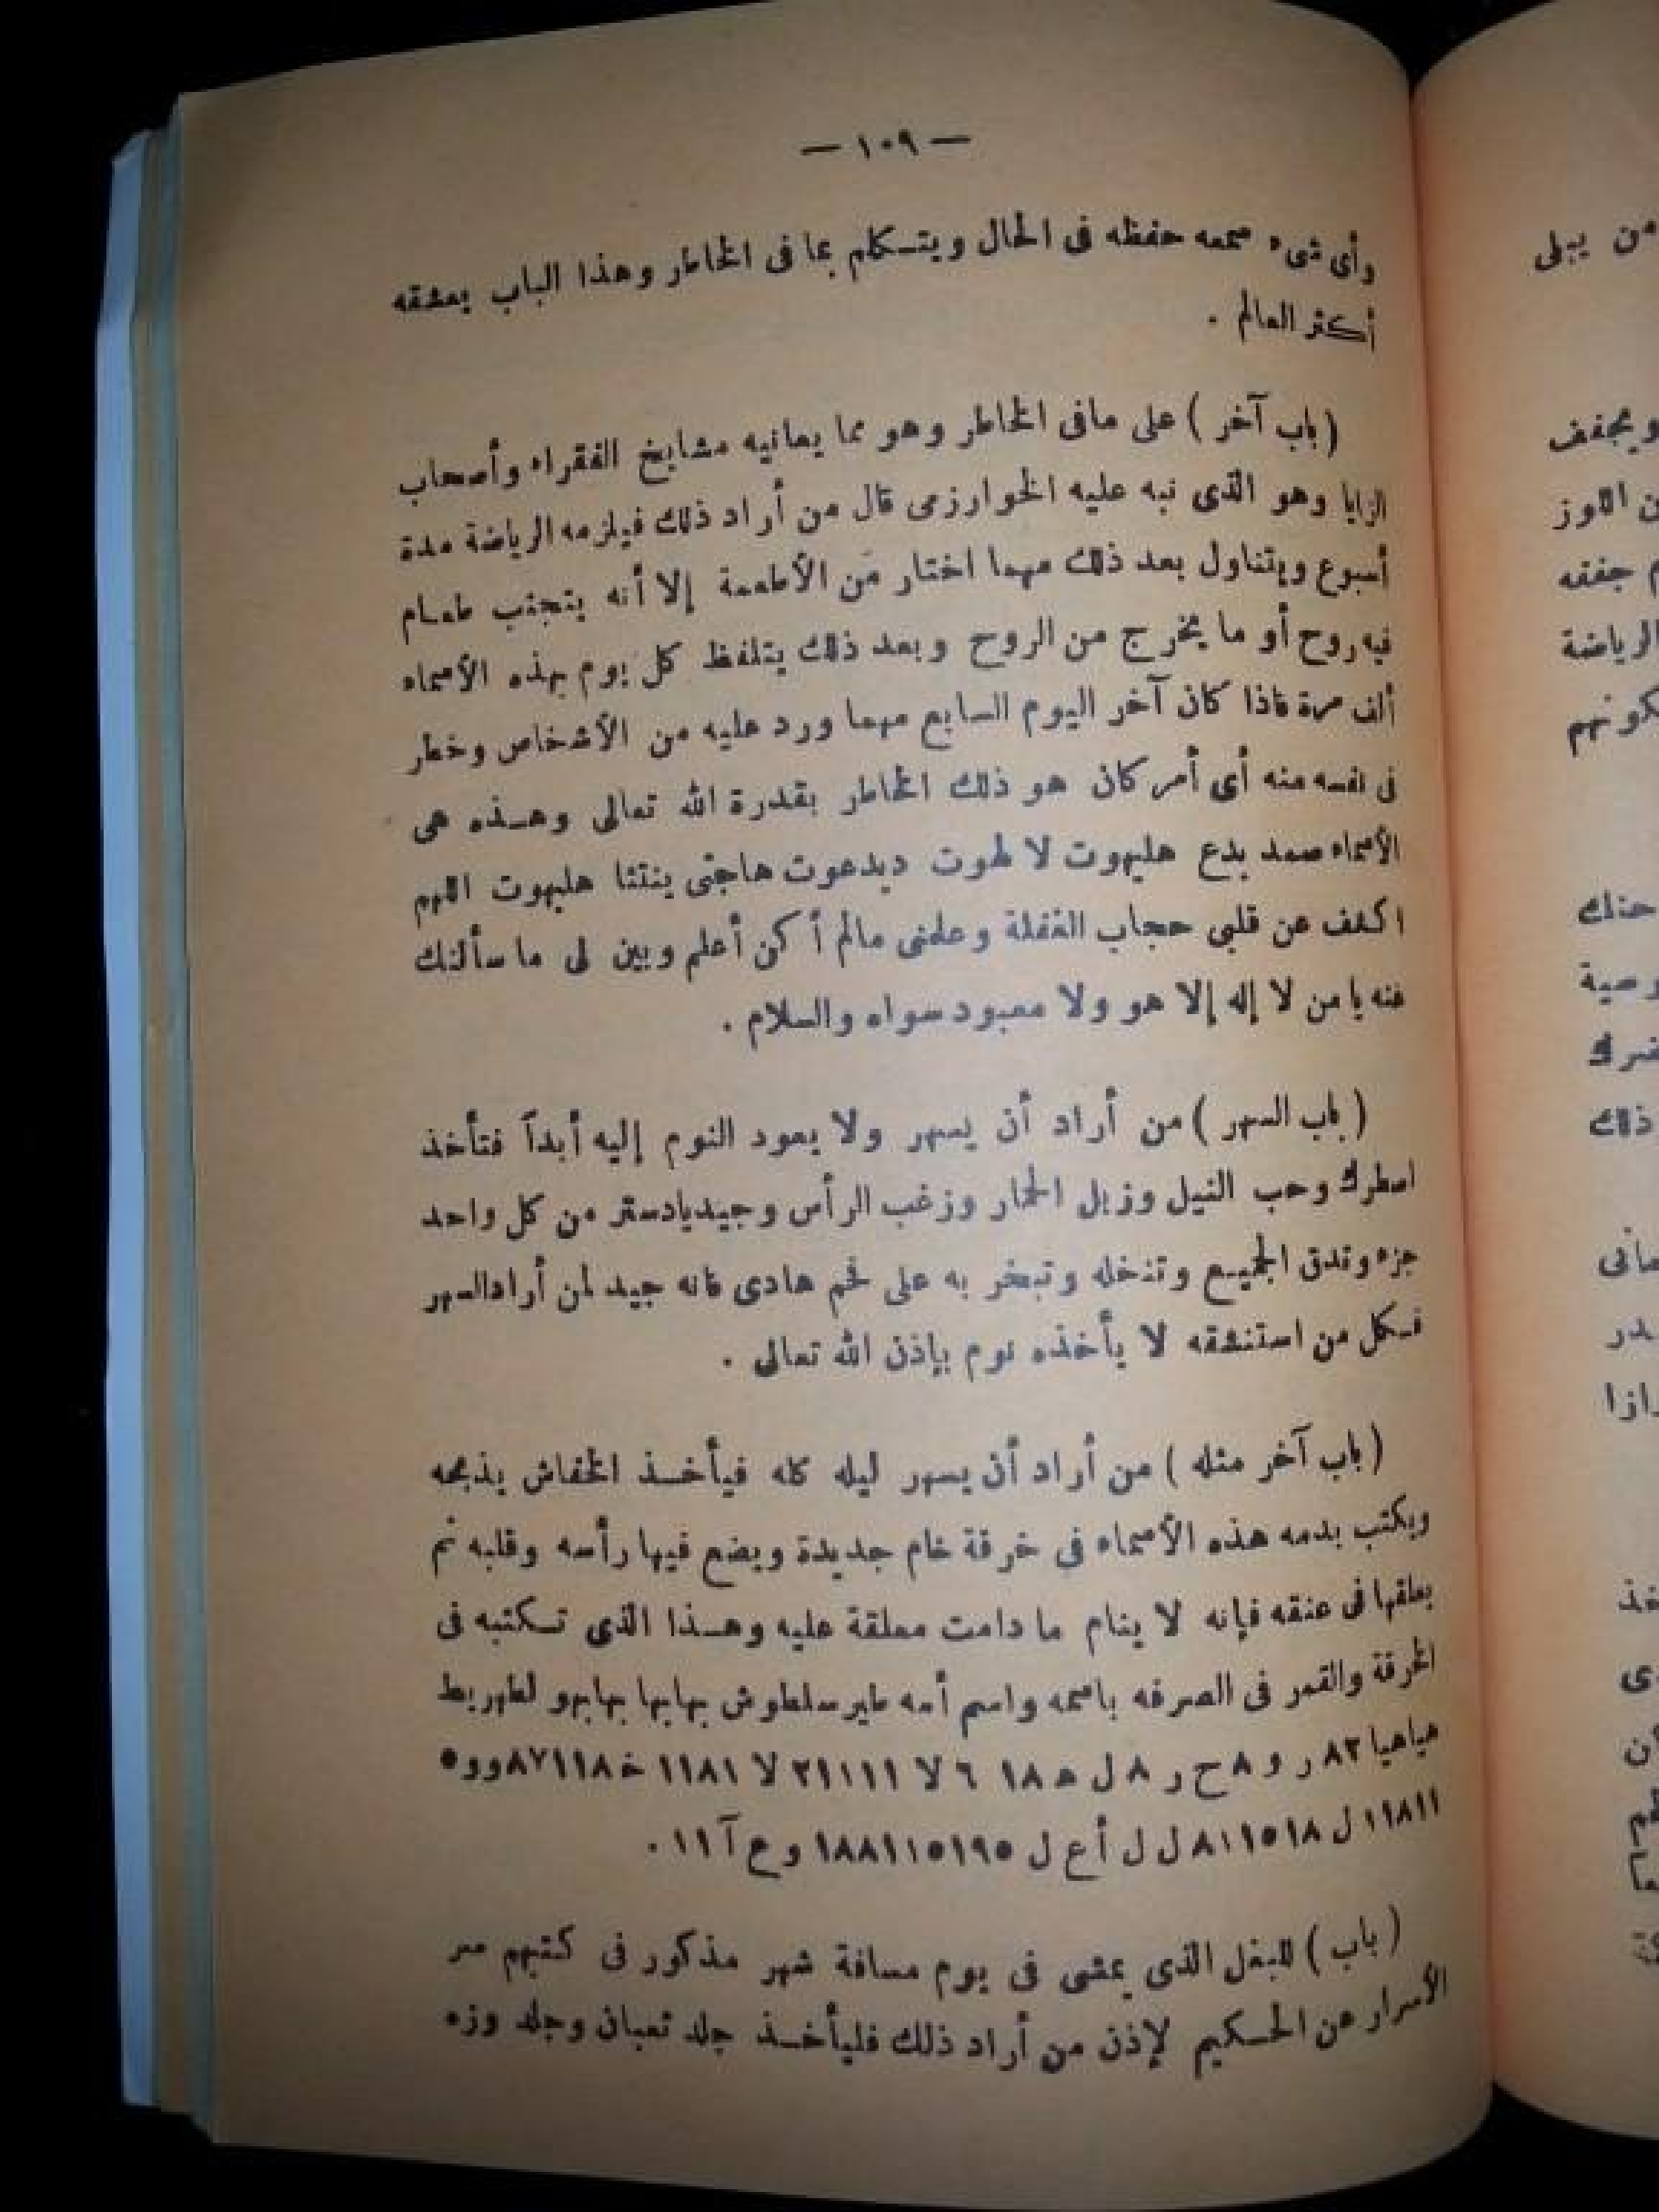 — ١٠٩ —
وأى شىء سمعه حفظه فى الحال ويتـكلم بما فى الخاطر وهذا الباب يعشقه
أكثر العالم .
( باب آخر ) على مافى الخاطر وهو مما يعانيه مشايخ الفقراء وأصحاب
الزايا وهو الذى نبه عليه الخوارزمى قال من أراد ذلك فيلزمه الرياضة مدة
أسبوع ويتناول بعد ذلك مهما اختار من الأطعمة إلا أنه يتجنب طعـام
فيه روح أو ما يخرج من الروح وبعد ذلك يتلفظ كل يوم بهذه الأسماء
ألف مرة فاذا كان آخر اليوم السابع مهما ورد عليه من الأشخاص وخطر
فى نفسه منه أى أمر كان هو ذلك الخاطر بقدرة الله تعالى وهـذه هى
الأسماء صمد بدع هليهوت لا طوت ديدعوت هاجتى ينتثا هليهوت اللهم
اكشف عن قلبى حجاب الغفلة وعلمنى مالم أكن أعلم وبين لى ما سألتك
عنه يا من لا إله إلا هو ولا معبود سواه والسلام .
( باب السهر ) من أراد أن يسهر ولا يعود النوم إليه أبدآ فتأخذ
اسطرك وحب النيل وزبل الحمار وزغب الرأس وجيديادستر من كل واحد
جزء وتدق الجميـع وتنخله وتبخر به على فحم هادى فانه جيد لمن أرادالسهر
فـكل من استنشقه لا يأخذه نوم بإذن الله تعالى .
( باب آخر مثله ) من أراد أن يسهر ليله كله فيأخـذ الخفاش يذبحه
ويكتب بدمه هذه الأسماء فى خرقة خام جديدة ويضع فيها رأسه وقلبه ثم
يعلقها فى عنقه فإنه لا ينام ما دامت معلقة عليه وهـذا الذى تـكتبه فى
الخرقة والقمر فى الصرفه باسمه واسم أمه طير سلطوش بهابها بهابهو لطهربط
هياهيا ٨٢ ر و ٨ ح ر ٨ ل ه ١٨ ٦ لا ٢١١١١ لا ١١٨١ خ ٨٧١١٨وو٥
١١٨١١ ل ٨١١٥١٨ ل ل أ ع ل ١٨٨١١٥١٩٥ و ع آ ١١ .
( باب ) للبغل الذى يمشى فى يوم مسافة شهر مذكور فى كتبهم سر
الأسرار عن الحـكيم لإذن من أراد ذلك فليأخـذ جلد ثعبان وجلد وزه
من يبلى
ويجفف
ن اللوز
م جففه
الرياضة
كونهم
حنك
وصية
ضرك
ذلك